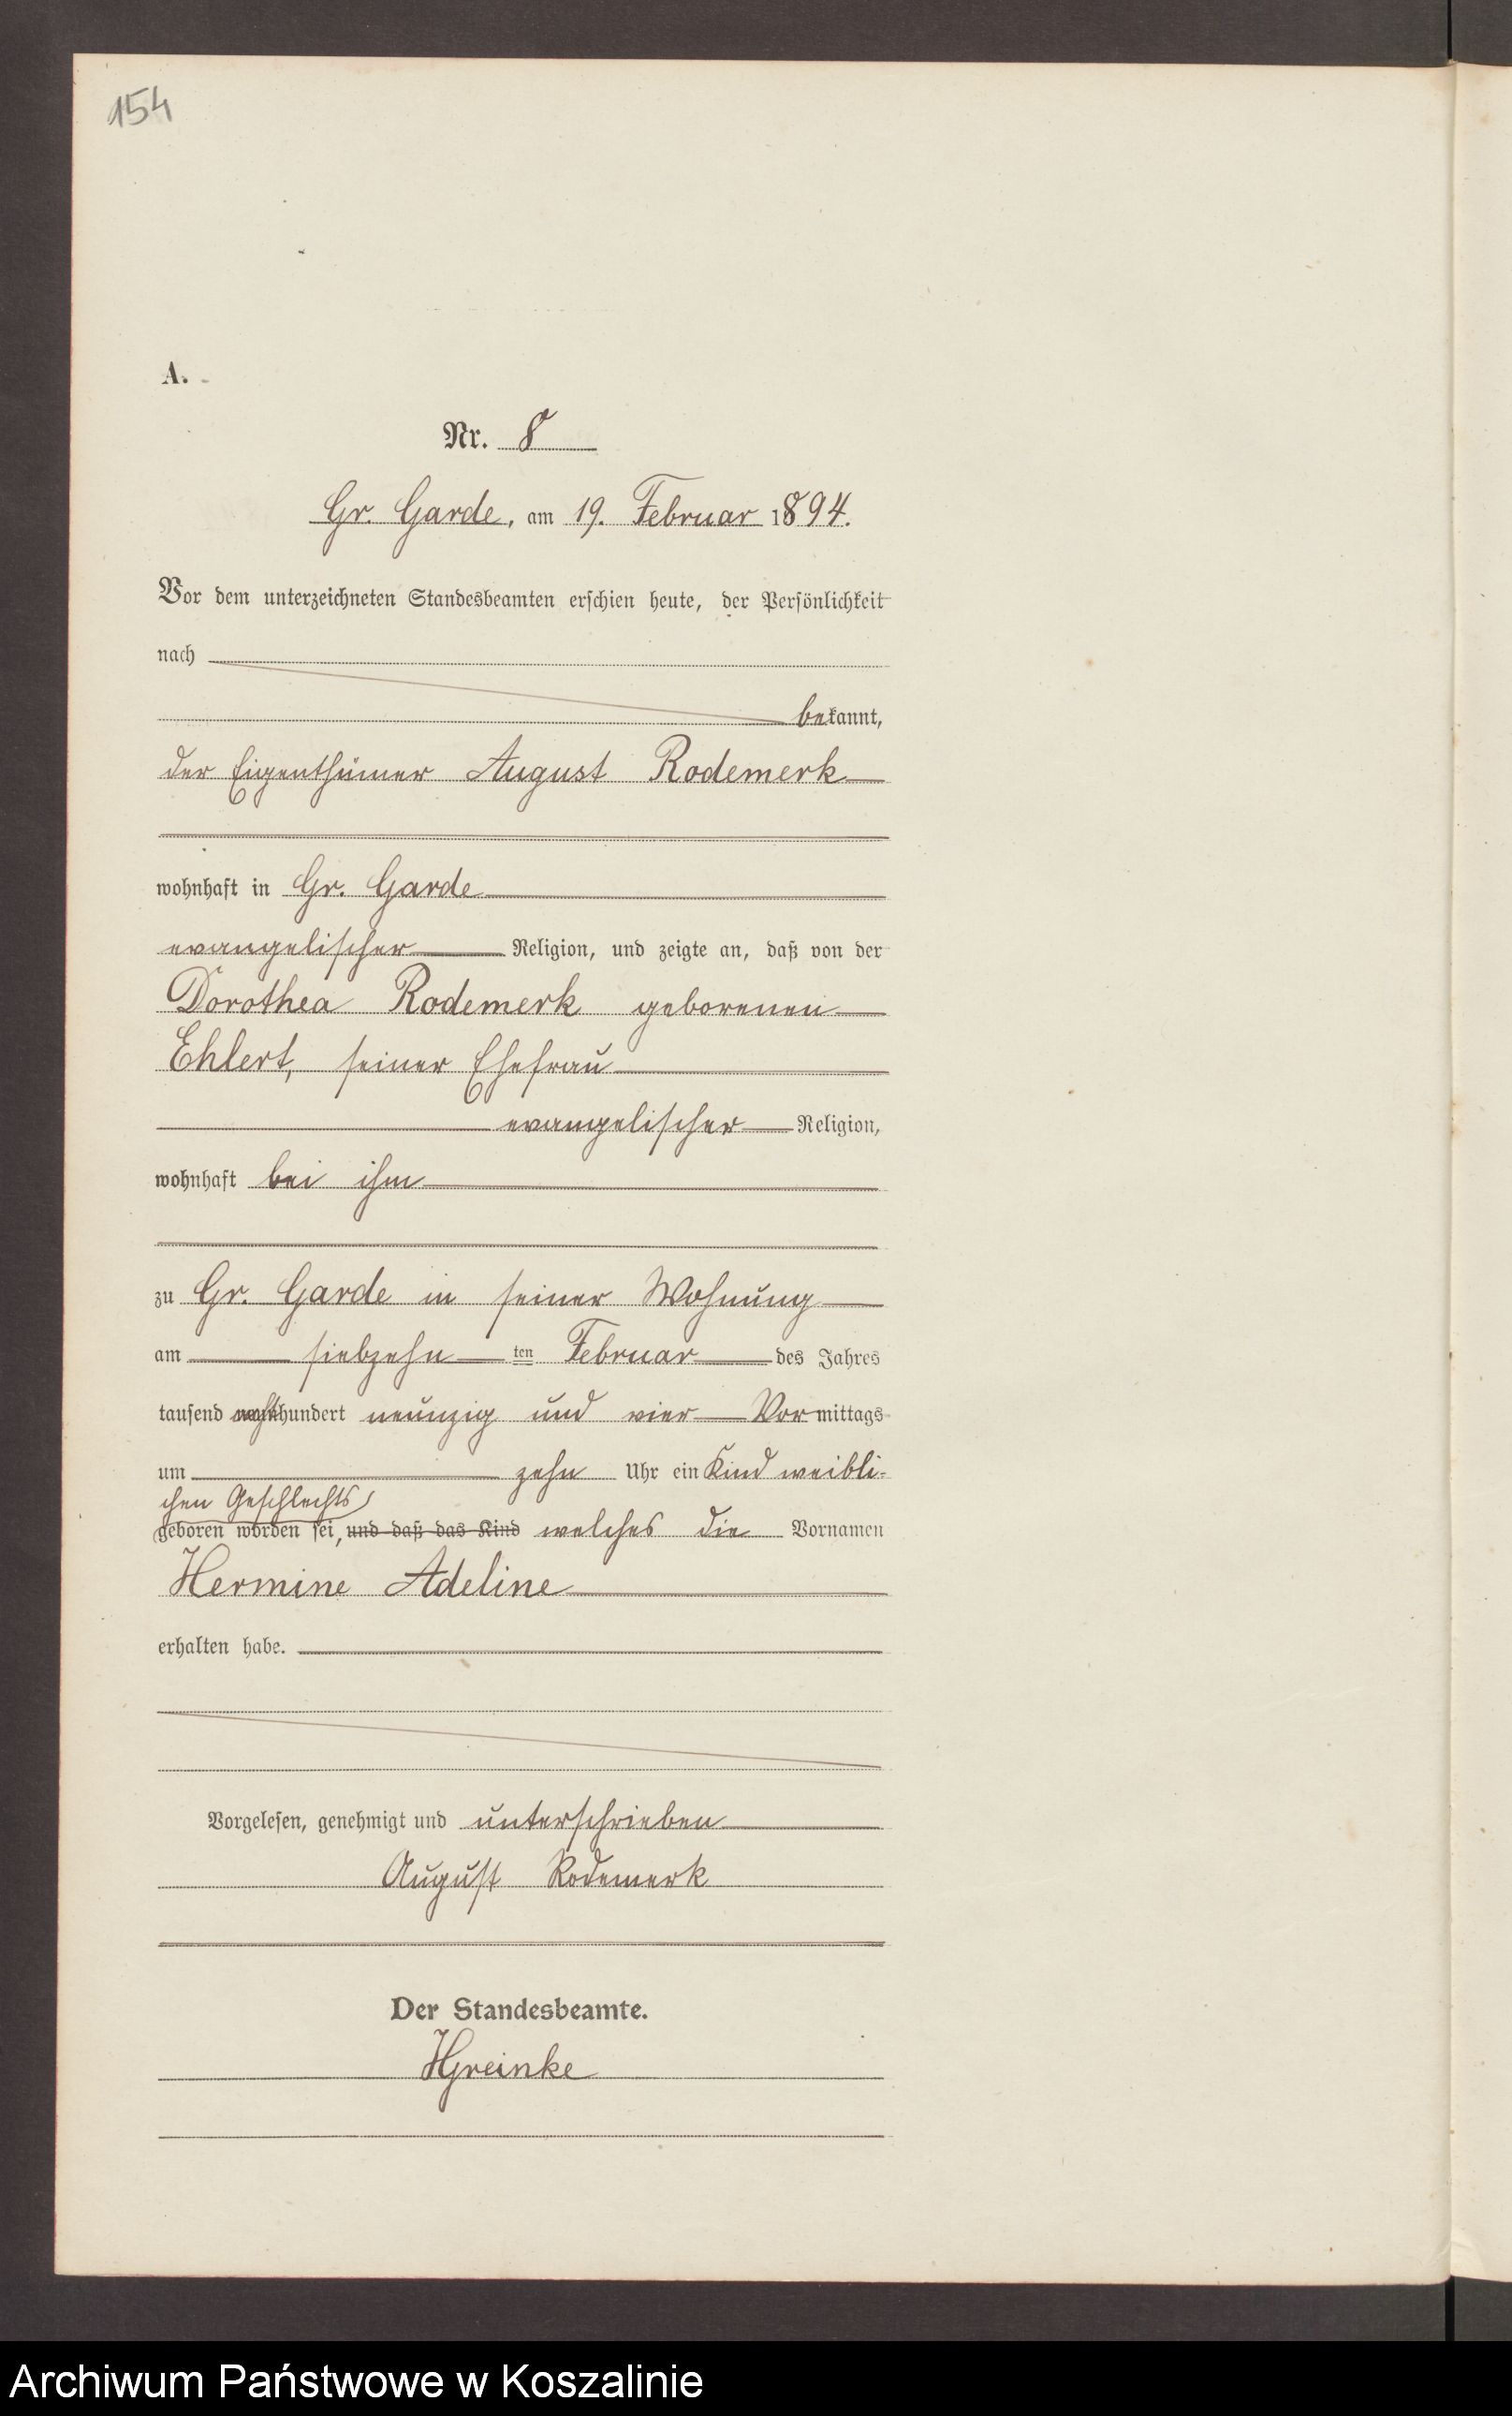 154
A.
Nr. 8
Gr. Garde, am 19. Februar 1894.
Vor dem unterzeichneten Standesbeamten erschien heute, der Persönlichkeit
nach
bekannt,
der Eigenthümer August Rodemerk
wohnhaft in Gr. Garde
evangelischer Religion, und zeigte an, daß von der
Dorothea Rodemerk geborenen
Ehlert, seiner Ehefrau
evangelischer Religion,
wohnhaft bei ihm
zu Gr. Garde in seiner Wohnung
am siebzehn ten Februar des Jahres
tausend achthundert neunzig und vier Vormittags
um zehn Uhr ein Kind weibli-
chen Geschlechts
geboren worden sei, und daß das Kind welches die Vornamen
Hermine Adeline
erhalten habe.
Vorgelesen, genehmigt und unterschrieben
August Rodemerk
Der Standesbeamte.
Archiwum Państwowe w Koszalinie